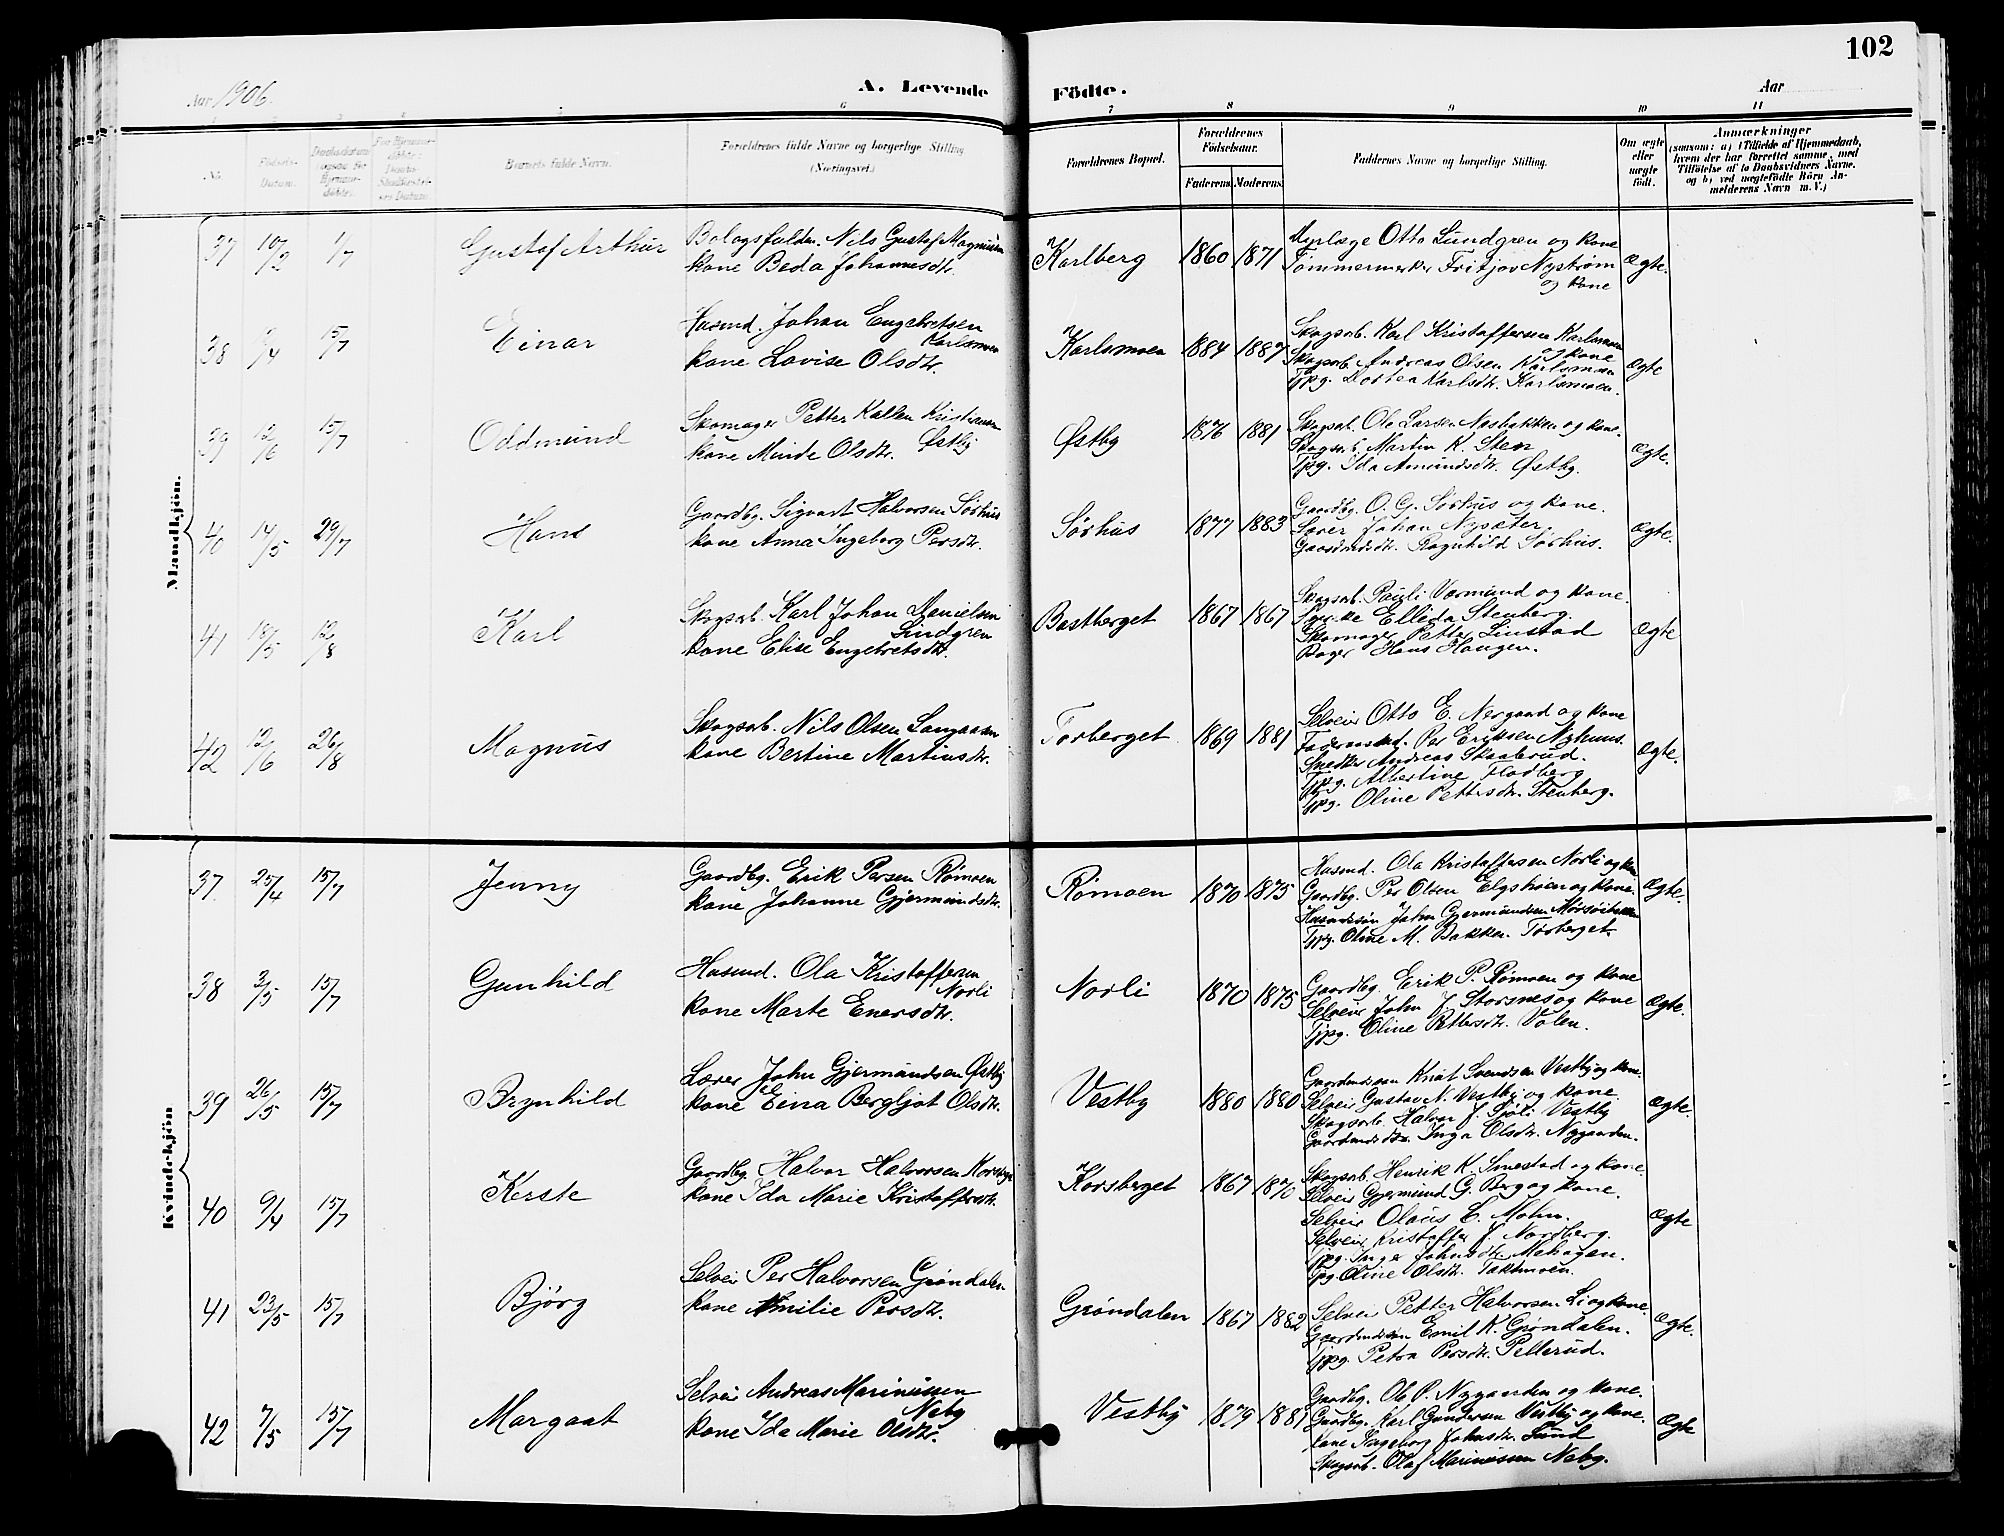 102
Aar 1906.
A. Levende Födte.
Aar
5 6 7 8 9 10 11
No.
Födsels-Datum.
Barnets fulde Navn.
Forældrenes fulde Navne og borgerlige Stilling
(Næringsvei.)
Forældrenes Bopæl.
Forældrenes Födselsaar.
Faderens. Moderens.
Faddernes Navne og borgerlige Stilling.
Om ægte eller uægte født.
Anmærkninger
(saasom: a) i Tilfælde af Hjemmedaab,
hvem der har forrettet samme, med
Tilföielse af to Daabsvidners Navne.
og b) ved uægtefödte Börn An-
melderens Navn m. V.)
Mandkjön.
37 10/2 1/7 Gustaf Arthur
Bologsfuldm. Nils Gustaf Magnusen
kone Beda Johannesdtr.
Karlberg 1860 1871
Otto Lundgren og kone
Tømmermerker Fritjov Nystrøm
og kone
Ægte.
38 /4 15/7 Einar
Husmd. Johan Engebretsen
Karlsmoen
kone Lovise Olsdtr.
Karlsmoen 1884 1887
Skogsarb. Karl Kristoffersen Karlsmoen
og kone
Skogsarb. Andreas Olsen Karlsmoen
Tjpg. Dortea Karlsdtr. Karlsmoen.
Ægte
39 12/6 15/7 Oddmund
Skomager Petter Kallen Kristiansen
kone Minde Olsdtr. Østby
Østby 1876 1881
Skogsarb. Ole Larsen Næsbakken og kone.
Skogsarb. Martin K. Sten
Tjpg. Ida Amundsdtr. Østby.
Ægte.
40 14/5 29/7 Hans
Gaardbg. Sigvart Halvorsen Sørhus
kone Anna Ingeborg Persdtr.
Sørhus 1877 1883
Gaardbg. O. G. Sørhus og kone.
Lærer Johan Nysæter.
Gaardmdsdtr. Ragnhild Sørhus.
Ægte.
41 18/5 12/8 Karl
Skogsarb. Karl Johan Danielsen
Lindgren
kone Elise Engebretsdtr.
Bastberget 1867 1867
Skogsarb. Pauli Varmund og kone.
Elleda Stenberg.
Skomager Petter Linstad
Bager Hans Haugen.
Ægte
42 12/6 26/8 Magnus
Skogsarb. Nils Olsen Langaasen
kone Bertine Martinsdtr.
Tørberget 1869 1881
Selveier Otto E. Nergaard og kone
Per Eriksen Nyhuus.
Snedker Andreas Skaaberud.
Tjpg. Albertine Flodberg
Tjpg. Oline Pettersdtr. Stenberg.
Ægte.
Kvindekjön
37. 25/4 15/7 Jenny
Gaardbg. Erik Persen Rømoen
kone Johanne Gjermundsdtr.
Rømoen 1870 1875
Husmd. Ola Kristoffersen Norli og kone
Gaardbg. Per Olsen Elgshøen og kone.
Husmdssøn John Gjermundsen
Tjpg. Oline M. Bakken. Tørberget.
Ægte.
38 3/5 15/7 Gunhild
Husmd. Ola Kristoffersen
Norli
kone Marte Enersdtr.
Norli 1870 1875
Gaardbg. Erik P. Rømoen og kone
Selveier John J. Storsnes og kone
Tjpg. Oline Pettersdtr. Volen.
Ægte.
39 26/5 15/7 Brynhild
Lærer John Gjermundsen Østby
kone Eina Bergljot Olsdtr.
Vestby 1880 1880
Gaardmdssøn Knut Svendsen Vestby og kone.
Selveier Gustav N. Vestby og kone
Skogsarb. Halvor J. Sjøli Vestby
Gaardmdsdtr. Inga Olsdtr. Nygaarden.
Ægte.
40 9/4 15/7 Kerste
Gaardbg. Halvor Halvorsen Korsberget
kone Ida Marie Kristoffersdtr.
Korsberget 1867 1870
Skogsarb. Henrik K. Smestad og kone
Selveier Gjermund G. Berg og kone.
Selveier Olaus E. Mohn.
Selveier Kristoffer J. Nordberg.
Tjpg. Inger Johnsdtr. Mehagen.
Tjpg. Oline Olsdtr. Taktmoen.
Ægte
41 23/5 15/7 Bjørg
Selveier Per Halvorsen Grøndalen
kone Emilie Persdtr.
Grøndalen 1867 1882
Selveier Petter Halvorsen Li og kone.
Gaardmdssøn Emil K. Grøndalen.
Tjpg. Petra Persdtr. Pellerud.
Ægte.
42 7/5 15/7 Margaat
Selveier Andreas Marinussen
Neby
kone Ida Marie Olsdtr.
Vestby 1879 1881
Gaardbg. Ole P. Nygaarden og kone.
Gaardbg. Karl Gundersen Vestby og kone.
kone Ingeborg Johnsdtr. Lund
Skogsarb. Olaf Marinussen Neby.
Ægte